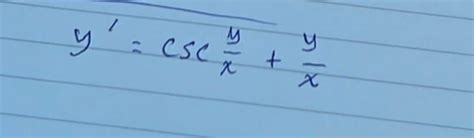 y' = csc y/x + y/x